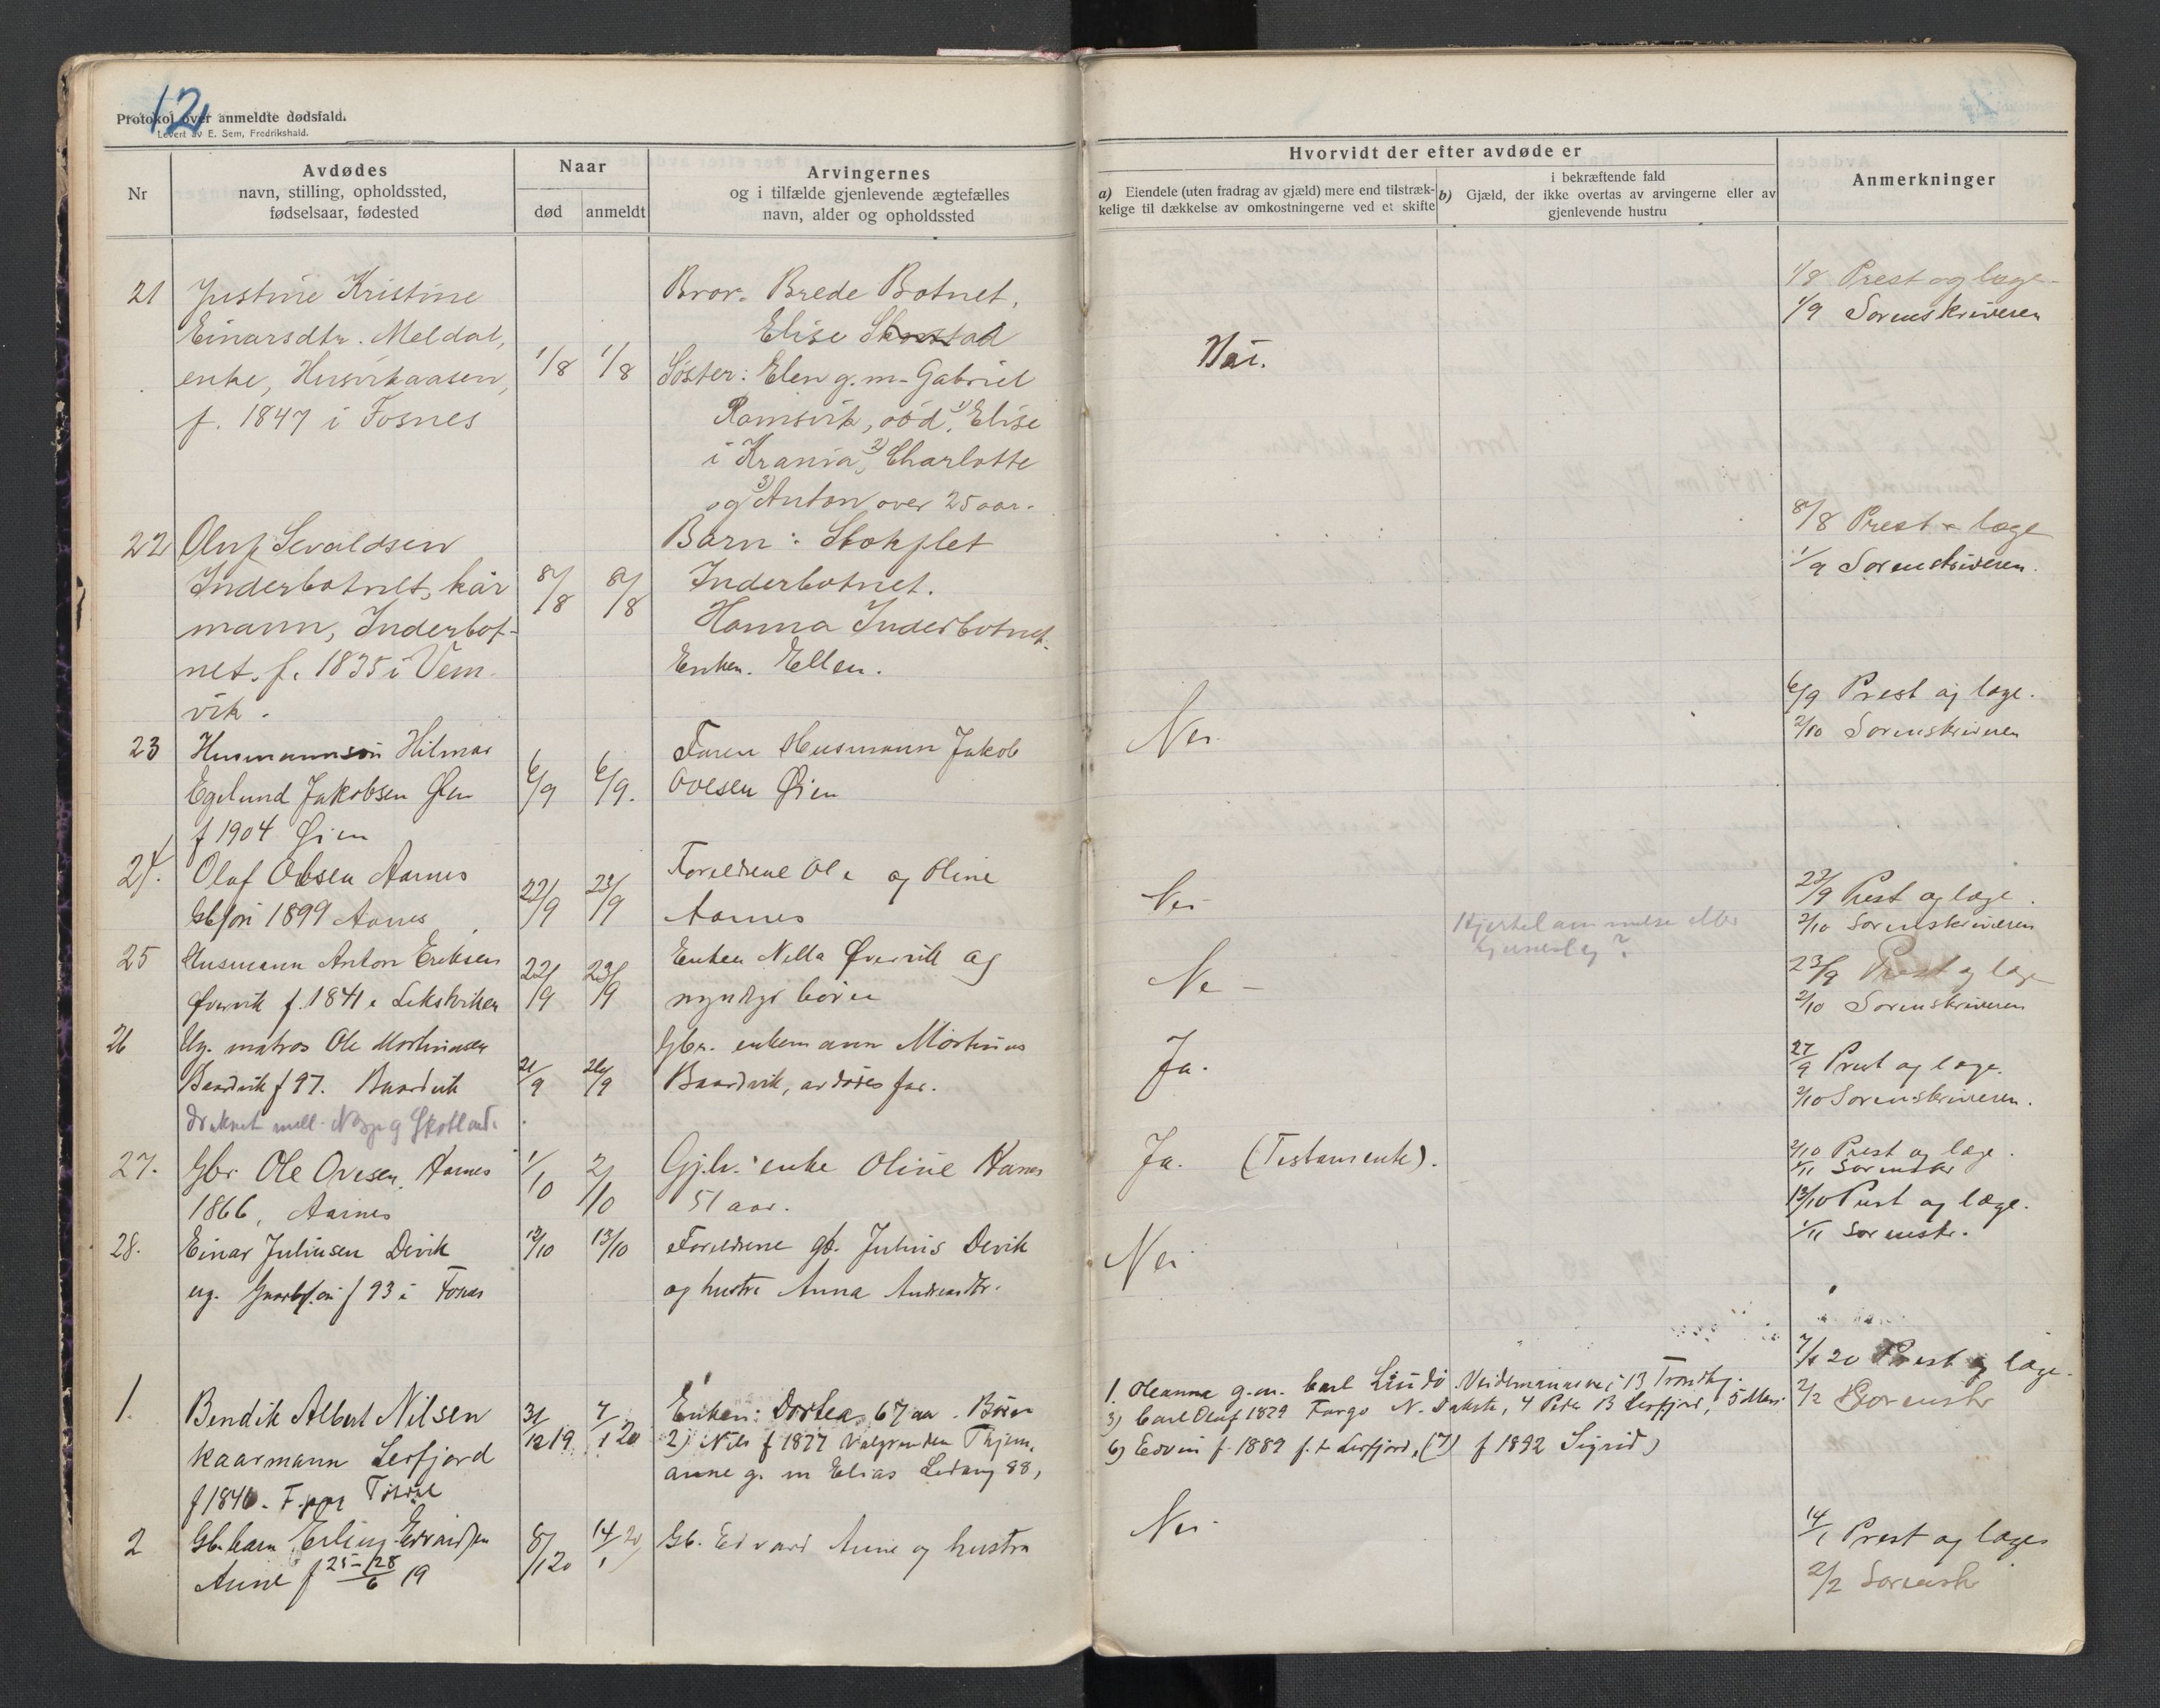 12
Protokol over anmeldte dødsfald.
Levert av E. Sem, Fredrikshald.
Nr
Avdødes
navn, stilling, opholdssted,
fødselsaar, fødested
Naar
død
anmeldt
Arvingernes
og i tilfælde gjenlevende ægtefælles
navn, alder og opholdssted
Hvorvidt der efter avdøde er
a) Eiendele (uten fradrag av gjæld) mere end tilstræk-
kelige til dækkelse av omkostningerne ved et skifte
i bekræftende fald
b) Gjæld, der ikke overtas av arvingerne eller av
gjenlevende hustru
Anmerkninger
21
Justine Kristine
Einarsdtr. Meldal,
enke, Husvikaasen,
f. 1847 i Fosnes
1/8
1/8
Bror. Brede Botnet,
Elise
Søster: Elen g. m. Gabriel
Ramsvik, død, 1) Elise
i Krania, 2) Charlotte
og 3) Anton over 25 aar.
Nei.
1/8 Prest og læge
1/9 Sorenskriveren
22
Oluf Sevaldsen
Inderbotnet, kår
mann, Inderbot-
net. f. 1835 i Vem-
vik.
8/8
8/8
Barn:
Inderbotnet.
Hanna Inderbotnet.
Enken. Ellen.
8/8 Prest læge
1/9 Sorenskriveren.
23
Husmannsøn Hilmar
Egelund Jakobsen Øien
f 1904 Øien
6/9
6/9.
Faren Husmann Jakob
Ovesen Øien
Nei
6/9 Prest og læge.
2/10 Sorenskriveren
24.
Olaf Olsen Aarnes
Gbsøn 1899 Aarnes
22/9
23/9
Foreldrene Ole og Oline
Aarnes
Nei
23/9 Prest og læge.
2/10 Sorenskriveren
25
Husmann Anton Eriksen
Øvervik f. 1841 i Leksviken
22/9
23/9
Enken Nella Øvervik og
myndige børn
Ne
Hjertelammelse eller
hjerneslag?
23/9 Prest og læge
2/10 Sorenskriveren
26
Ug. matros Ole Mortinusen
Baardvik f 97. Baardvik
druknet mell. Norge og Skotland.
21/9
Gbr. enkemann Mortinus
Baardvik, avdødes far.
Ja.
27/9 Prest og læge.
2/10 Sorenskriveren.
27.
Gbr Ole Ovesen Aarnes
1866, Aarnes
1/10
2/10
Gjlv. enke Oline Aarnes
51 aar.
Ja. (Testamente).
2/10 Prest og læge.
1/11 Sorenskr
28.
Einar Juliusen Devik
ug. Gaardbr.søn f 93 i Fosnes
12/10
13/10
Foreldrene gb. Julius Devik
og hustru Anna Andreasdtr.
Nei
13/10 Prest og læge.
1/11 Sorenskr.
1.
Bendik Albert Nilsen
Kaarmann Lerfjord
f 1846.
31/12 19
7/1 20
Enken: Dortea 67 aar. Børn
2) Nils f 1877
anne g. m Elias Ledang 88,
1. Oleanna g. m. Carl Lindø Veidemannsvei 13 Trondhj.
3) Carl Oluf 1879 Fargo N. Dakota, 4 Peder B Lerfjord,
6) Edvin f. 1889 f. t. Lerfjord, (7) f 1892 Sigrid)
7/1 20 Prest og læge.
2/2 Sorenskr
2
Gb. barn Erling Edvardsen
Aune f 25-28/6 19
8/1 20
14/1 20
Gb. Edvard Aune og hustru
Nei
14/1 Prest og læges
2/2 Sorenskr